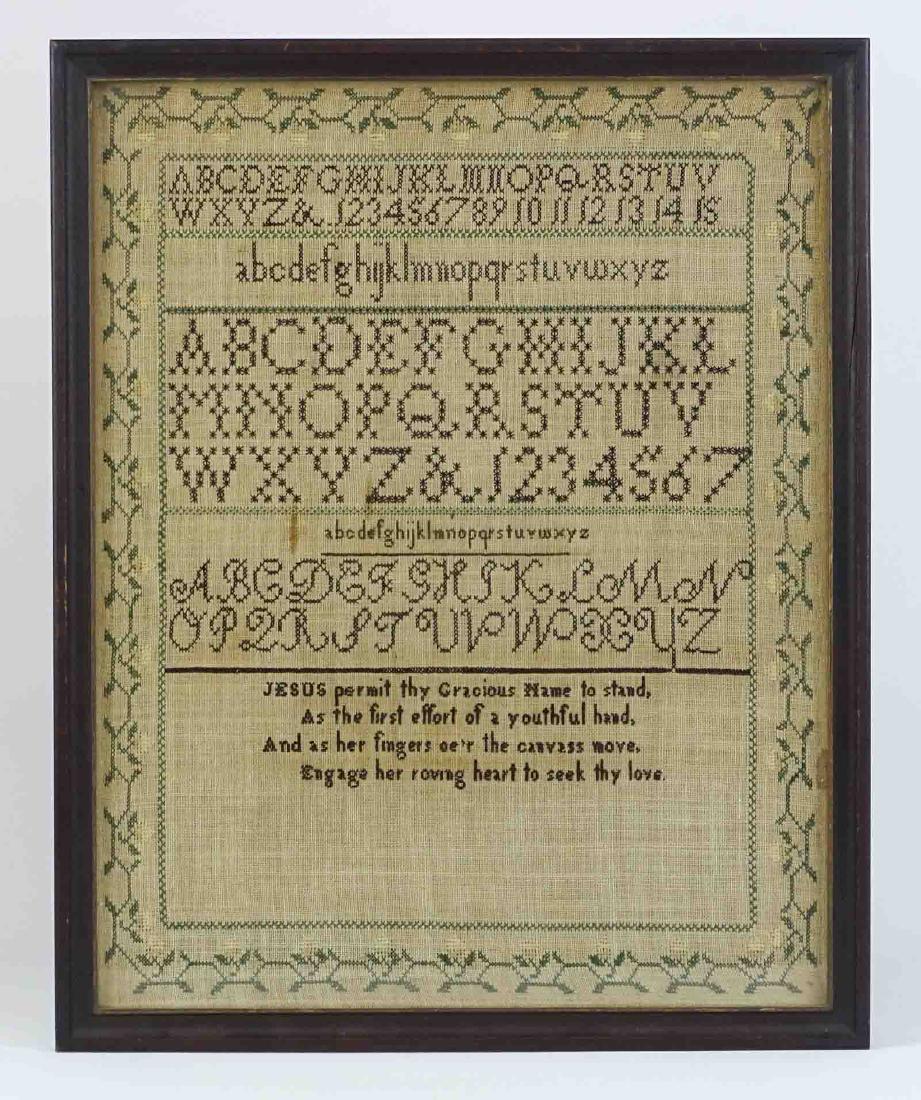 ABCDEFGHIJKLMNOPQRSTUV
WXYZ& 123456789 10 11 12 13 14 15
abcdefghijklmnopqrstuvwxyz
ABCDEFGHIJKL
MNOPQRSTUV
WXYZ&1234567
abcdefghijklmnopqrstuvwxyz
ABCDEFGHIKLMN
OPQRSTUVWXYZ
JESUS permit thy Gracious Name to stand,
As the first effort of a youthful hand,
And as her fingers oe'r the canvass move,
Engage her roving heart to seek thy love.